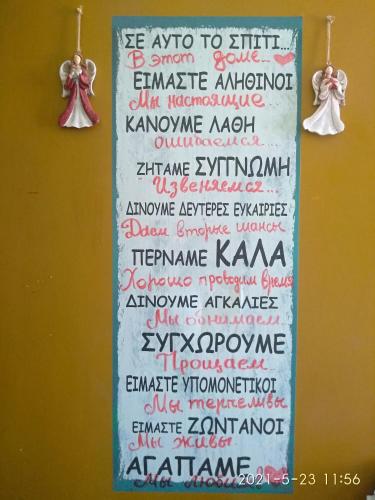 ΣΕ ΑΥΤΟ ΤΟ ΣΠΙΤΙ...
В этот доме...
ΕΙΜΑΣΤΕ ΑΛΗΘΙΝΟΙ
Мы настоящие...
ΚΑΝΟΥΜΕ ΛΑΘΗ
ошибаемся...
ΖΗΤΑΜΕ ΣΥΓΓΝΩΜΗ
Извеняемся...
ΔΙΝΟΥΜΕ ΔΕΥΤΕΡΕΣ ΕΥΚΑΙΡΙΕΣ
Даем вторые шансы
ΠΕΡΝΑΜΕ ΚΑΛΑ
Хорошо проводим время
ΔΙΝΟΥΜΕ ΑΓΚΑΛΙΕΣ
Мы обнимаем
ΣΥΓΧΩΡΟΥΜΕ
Прощаем...
ΕΙΜΑΣΤΕ ΥΠΟΜΟΝΕΤΙΚΟΙ
Мы терпеливы
ΕΙΜΑΣΤΕ ΖΩΝΤΑΝΟΙ
Мы живы
ΑΓΑΠΑΜΕ
Мы
2021-5-23 11:56